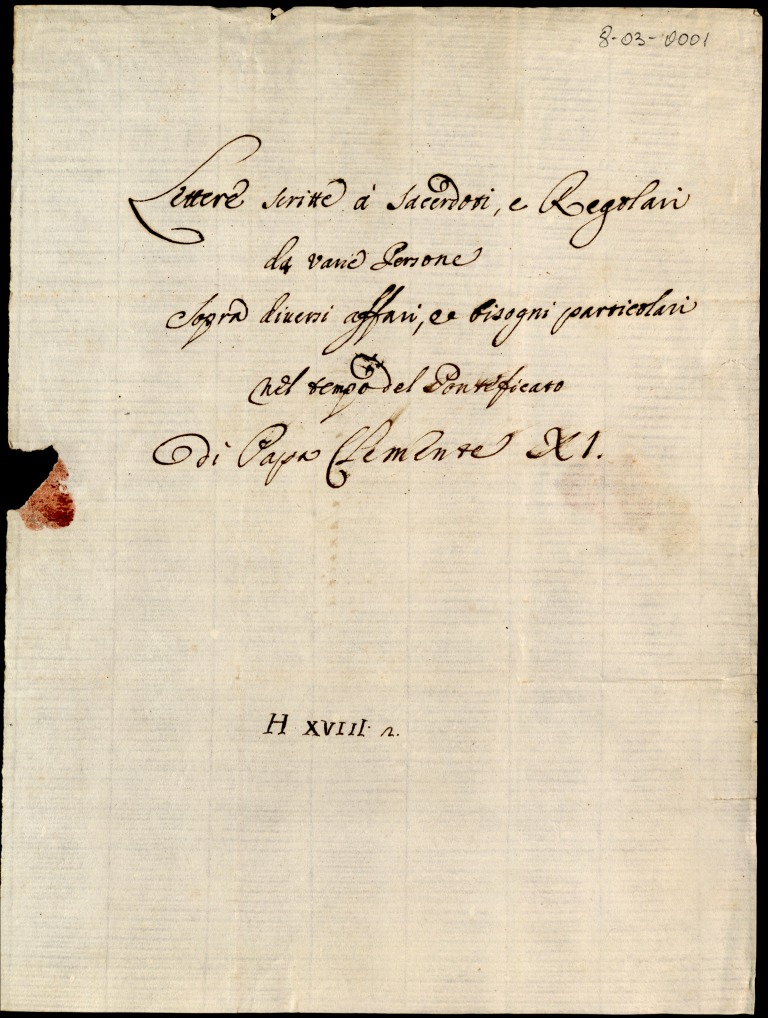 8-03-0001
Lettere scritte à Sacerdoti, e Regolari
da varie Persone
Sopra diuersi affari, e bisogni particolari
nel tempo del Pontificato
di Papa Clemente XI.
H XVIII